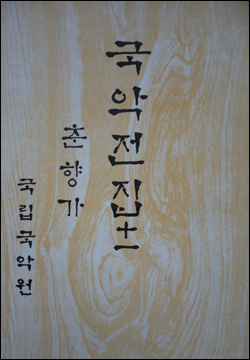 국악전집 十一
춘향가
국립국악원